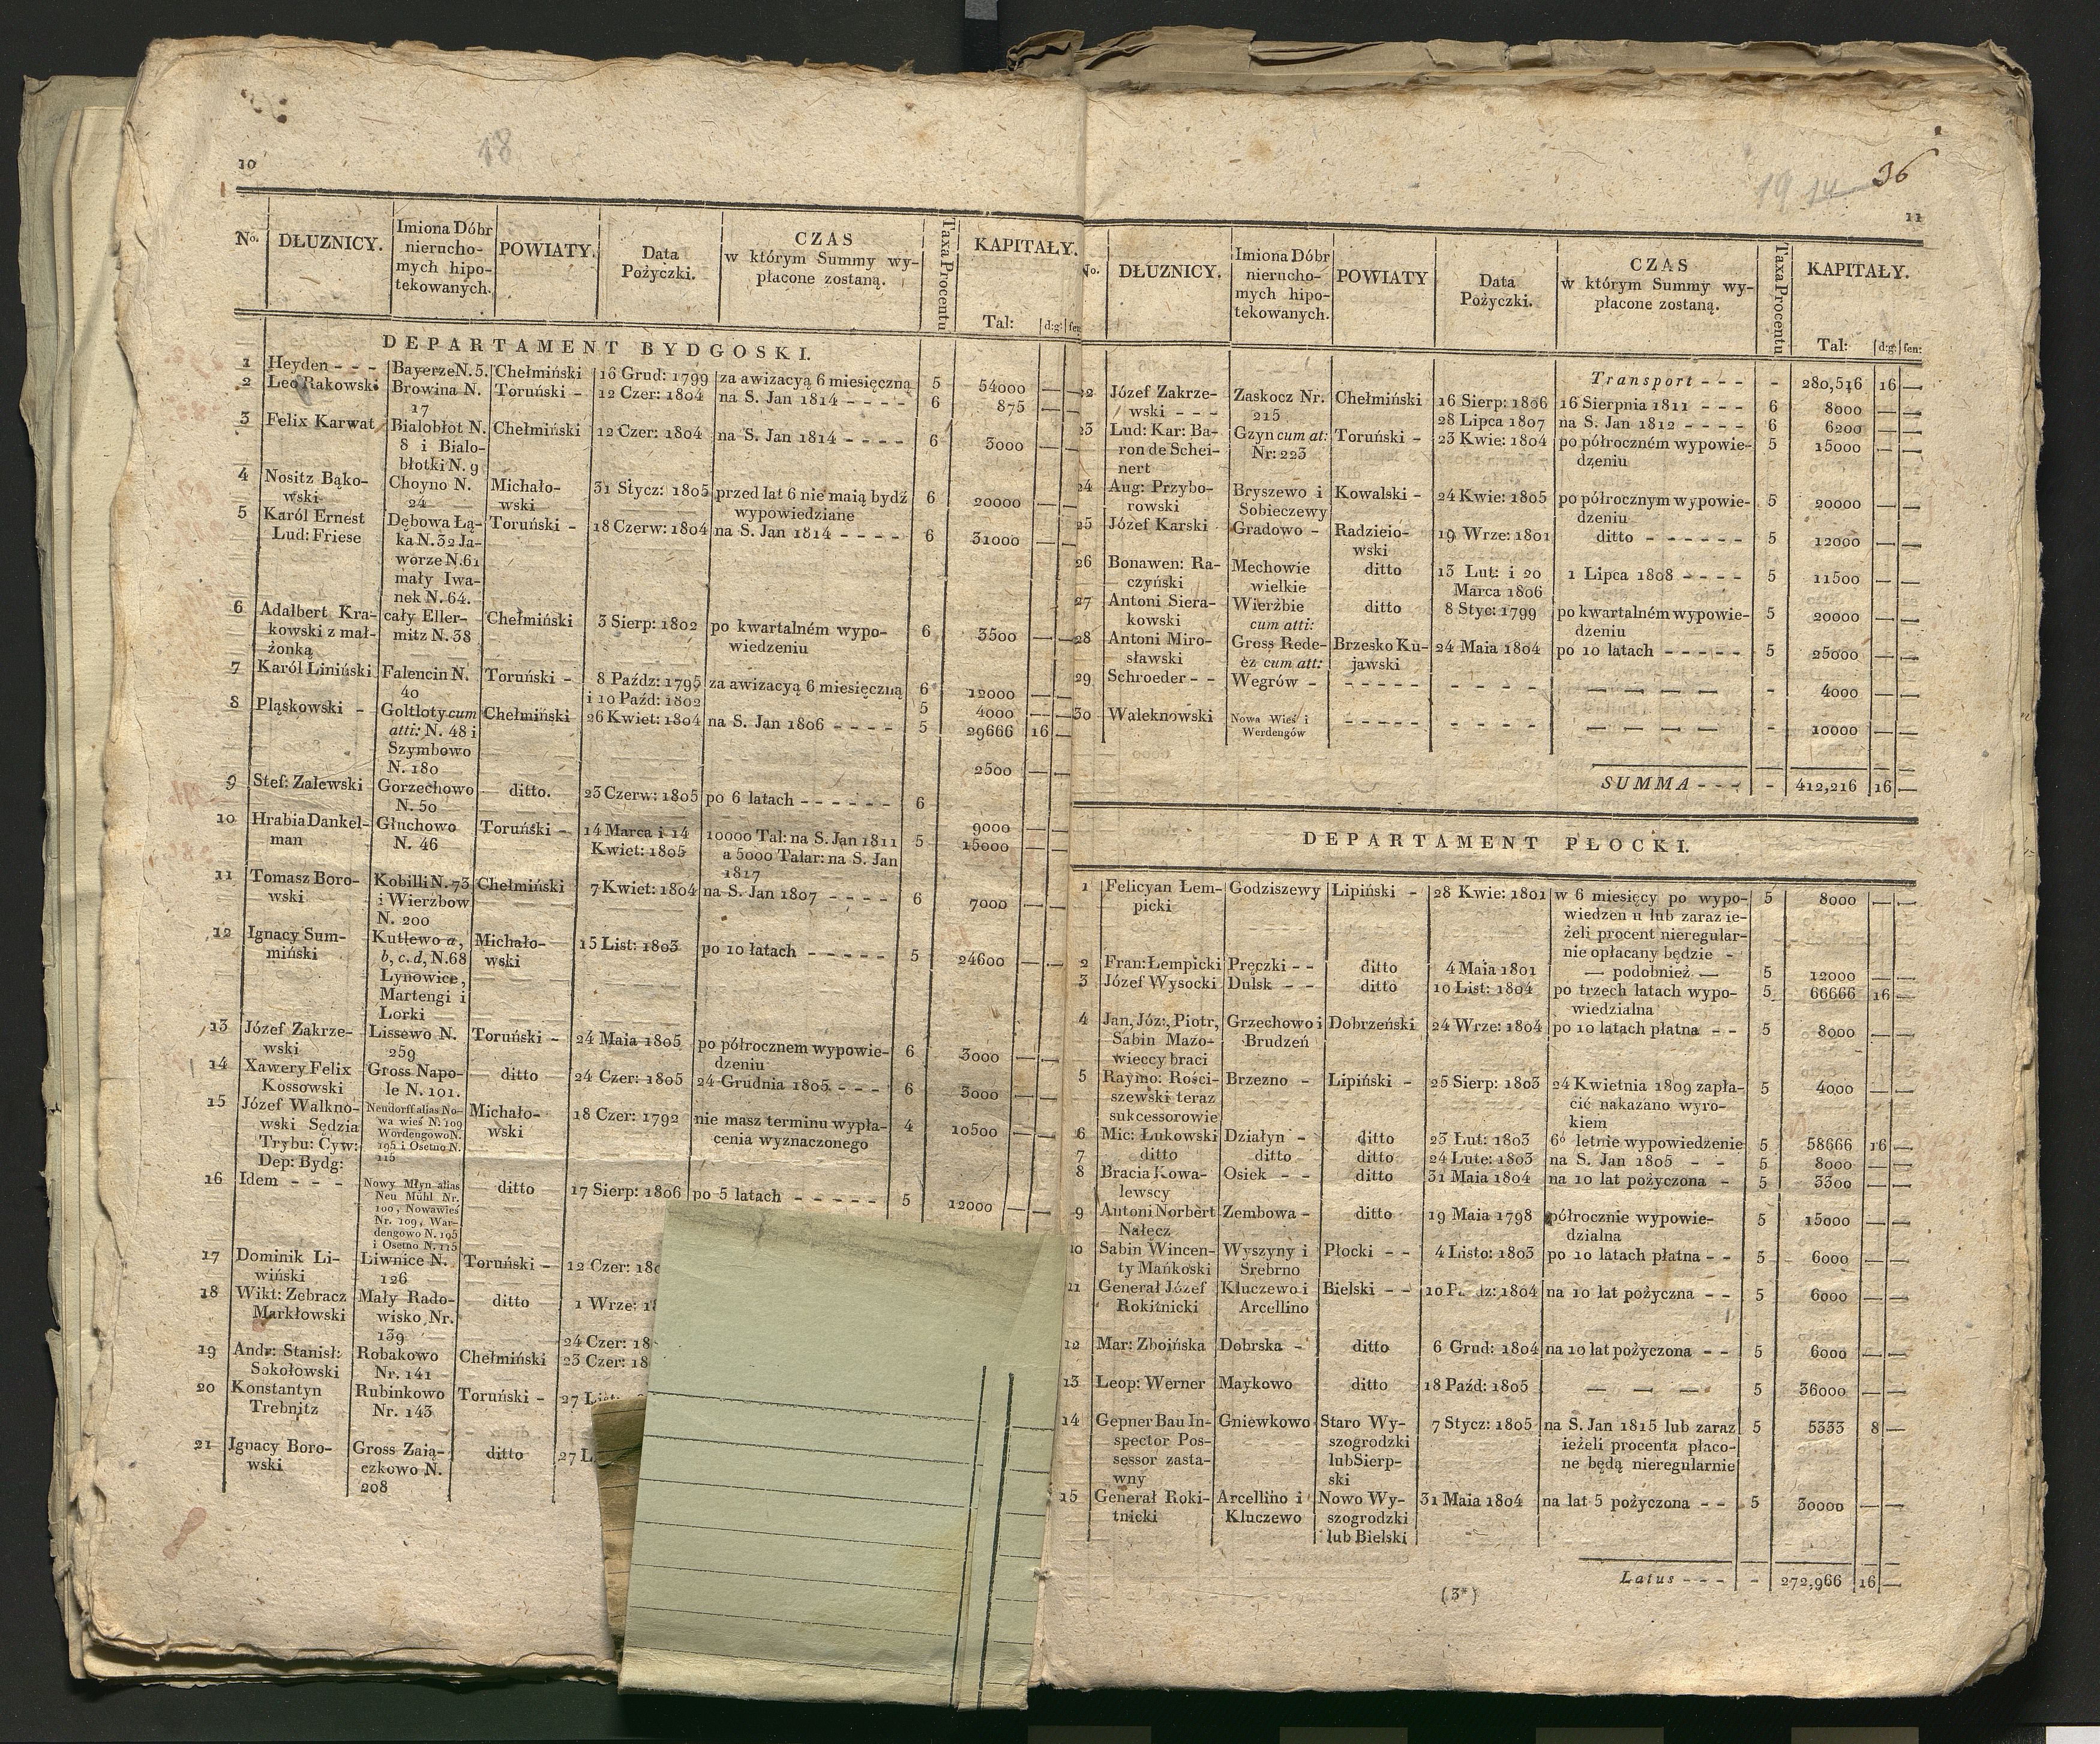 10
18
No.
DŁUZNICY.
Imiona Dóbr
nierucho-
mych hipo-
tekowanych.
POWIATY.
Data
Pożyczki.
CZAS
w którym Summy wy-
płacone zostaną.
Taxa Procentu
KAPITAŁY.
Tal: d:g: fen
DEPARTAMENT BYDGOSKI.
1 Heyden - - - Bayerze N. 5. Chełmiński 16 Grud: 1799 za awizacyą 6 miesięczną 5 54000 — —
2 Leo Rakowski Browina N. Toruński - 12 Czer: 1804 na S. Jan 1814 - - - - 6 875 — —
17
3 Felix Karwat Bialobłot N. Chełmiński 12 Czer: 1804 na S. Jan 1814 - - - - 6 3000 — —
8 i Bialo-
błotki N. 9
4 Nositz Bąko- Choyno N. Michało- 31 Stycz: 1805 przed lat 6 nie maią bydź 6 20000 — —
wski 24 wski wypowiedziane
5 Karól Ernest Dębowa Łą- Toruński - 18 Czerw: 1804 na S. Jan 1814 - - - - 6 31000 — —
Lud: Friese ka N. 32 Ja-
worze N. 61
mały Iwa-
nek N. 64.
6 Adalbert Kra- cały Eller- Chełmiński 3 Sierp: 1802 po kwartalném wypo- 6 3500 — —
kowski z mał- mitz N. 38 wiedzeniu
żonką
7 Karól Liniński Falencin N. Toruński - 8 Paźdz: 1795 za awizacyą 6 miesięczną 6 12000 — —
40 i 10 Paźd: 1802 5 4000 — —
8 Pląskowski - Goltloty cum Chełmiński 26 Kwiet: 1804 na S. Jan 1806 - - - - 5 29666 16 —
atti: N. 48 i
Szymbowo
N. 180 2500 — —
9 Stef: Zalewski Gorzechowo ditto. 23 Czerw: 1805 po 6 latach - - - - - - 6
N. 50 9000 — —
10 Hrabia Dankel- Głuchowo Toruński - 14 Marca i 14 10000 Tal: na S. Jan 1811 5 15000 — —
man N. 46 Kwiet: 1805 a 5000 Talar: na S. Jan
1817
11 Tomasz Boro- Kobilli N. 73 Chełmiński 7 Kwiet: 1804 na S. Jan 1807 - - - - 6 7000 — —
wski i Wierzbow
N. 200
12 Ignacy Sum- Kutlewo a, Michało- 15 List: 1803 po 10 łatach - - - - - 5 24600 — —
miński b, c. d, N. 68 wski
Lynowice,
Martengi i
Lorki
13 Józef Zakrze- Lissewo N. Toruński - 24 Maia 1805 po półrocznem wypowie- 6 3000 — —
wski 259 dzeniu
14 Xawery Felix Gross Napo- ditto 24 Czer: 1805 24 Grudnia 1805 - - - 6 3000 — —
Kossowski le N. 101.
15 Józef Walkno- Neudorff alias No- Michało- 18 Czer: 1792 nie masz terminu wypła- 4 10500 — —
wski Sędzia wa wieś N. 109 wski cenia wyznaczonego
Trybu: Cyw: Wordengowo N.
Dep: Bydg: 195 i Osetno N.
115
16 Idem - - - Nowy Młyn alias ditto 17 Sierp: 1806 po 5 latach - - - - - 5 12000 — —
Neu Mühl Nr.
100, Nowawieś
Nr. 109, War-
dengowo N. 195
i Osetno N. 115
17 Dominik Li- Liwnice N. Toruński - 12 Czer: 180
wiński 126
18 Wikt: Zebracz Mały Rado- ditto 1 Wrze: 18
Markłowski wisko Nr.
139 24 Czer: 18
19 Andr: Stanisł: Robakowo Chełmiński 23 Czer: 18
Sokołowski Nr. 141
20 Konstantyn Rubinkowo Toruński - 27 List:
Trebnitz Nr. 143
21 Ignacy Boro- Gross Zaią- ditto 27 L
wski czkowo N.
208
19 14 36
11
No.
DŁUZNICY.
Imiona Dóbr
nierucho-
mych hipo-
tekowanych.
POWIATY
Data
Pożyczki.
CZAS
w którym Summy wy-
płacone zostaną.
Taxa Procentu
KAPITAŁY.
Tal: d:g: fen:
Transport - - - - 280,516 16 —
22 Józef Zakrze- Zaskocz Nr. Chełmiński 16 Sierp: 1806 16 Sierpnia 1811 - - - 6 8000 — —
wski - - - 215 28 Lipca 1807 na S. Jan 1812 - - - - 6 6200 — —
23 Lud: Kar: Ba- Gzyn cum at: Toruński - 23 Kwie: 1804 po półroczném wypowie- 5 15000 — —
ron de Schei- Nr: 223 dzeniu
nert
24 Aug: Przybo- Bryszewo i Kowalski - 24 Kwie: 1805 po półrocznym wypowie- 5 20000 — —
rowski Sobieczewy dzeniu
25 Józef Karski Gradowo - Radzieio- 19 Wrze: 1801 ditto - - - - - - 5 12000 — —
wski
26 Bonawen: Ra- Mechowie ditto 13 Lut: i 20 1 Lipca 1808 - - - - 5 11500 — —
czyński wielkie Marca 1806
27 Antoni Siera- Wierźbie ditto 8 Styc: 1799 po kwartalném wypowie- 5 20000 — —
kowski cum atti: dzeniu
28 Antoni Miro- Gross Rede- Brzesko Ku- 24 Maia 1804 po 10 latach - - - - - 5 25000 — —
sławski cz cum att: jawski
29 Schroeder - - Wegrów - - - - - - - - - - — — — — - 4000 — —
30 Waleknowski Nowa Wieś i - - - - - - - - - — — — — - 10000 — —
Werdengów
SUMMA - - - - 412,216 16 —
DEPARTAMENT PŁOCKI.
1 Felicyan Łem- Godziszewy Lipiński - 28 Kwie: 1801 w 6 miesięcy po wypo- 5 8000 — —
picki wiedzen u lub zaraz ie-
żeli procent nieregular-
nie opłacany będzie -
2 Fran: Łempicki Pręczki - - ditto 4 Maia 1801 — podobnież — 5 12000 — —
3 Józef Wysocki Dulsk - - ditto 10 List: 1804 po trzech latach wypo- 5 66666 16 —
wiedzialna
4 Jan, Józ:, Piotr, Grzechowo i Dobrzeński 24 Wrze: 1804 po 10 latach płatna - - 5 8000 — —
Sabin Mazo- Brudzeń
wieccy braci
5 Raymo: Rości- Brzezno - Lipiński - 25 Sierp: 1803 24 Kwietnia 1809 zapła- 5 4000 — —
szewski teraz cić nakazano wyro-
sukcessorowie kiem
6 Mic: Łukowski Działyn - ditto 23 Lut: 1803 6ó letnie wypowiedzenie 5 58666 16 —
7 ditto ditto ditto 24 Lute: 1803 na S. Jan 1805 - - 5 8000 — —
8 Bracia Kowa- Osiek - - ditto 31 Maia 1804 na 10 lat pożyczona - 5 3300 — —
lewscy
9 Antoni Norbert Zembowa - ditto 19 Maia 1798 półrocznie wypowie- 5 15000 — —
Nałęcz dzialna
10 Sabin Wincen- Wyszyny i Płocki - - 4 Listo: 1803 po 10 latach płatna - - 5 6000 — —
ty Mańkoski Srebrno
11 Generał Józef Kluczewo i Bielski - - 10 P dz: 1804 na 10 lat pożyczna - - 5 6000 — —
Rokitnicki Arcellino
12 Mar: Zboińska Dobrska - ditto 6 Grud: 1804 na 10 lat pożyczona - - 5 6000 — —
13 Leop: Werner Maykowo ditto 18 Paźd: 1805 — — — 5 36000 — —
14 Gepner Bau In- Gniewkowo Staro Wy- 7 Stycz: 1805 na S. Jan 1815 lub zaraz 5 5333 8 —
spector Pos- szogrodzki ieżeli procenta płaco-
sessor zasta- lub Sierp- ne będą nieregularnie
wny ski
15 Generał Roki- Arcellino i Nowo Wy- 31 Maia 1804 na lat 5 pożyczona - - 5 30000 — —
tnicki Kluczewo szogrodzki
lub Bielski
Latus - - - - 272,966 16 —
(3*)